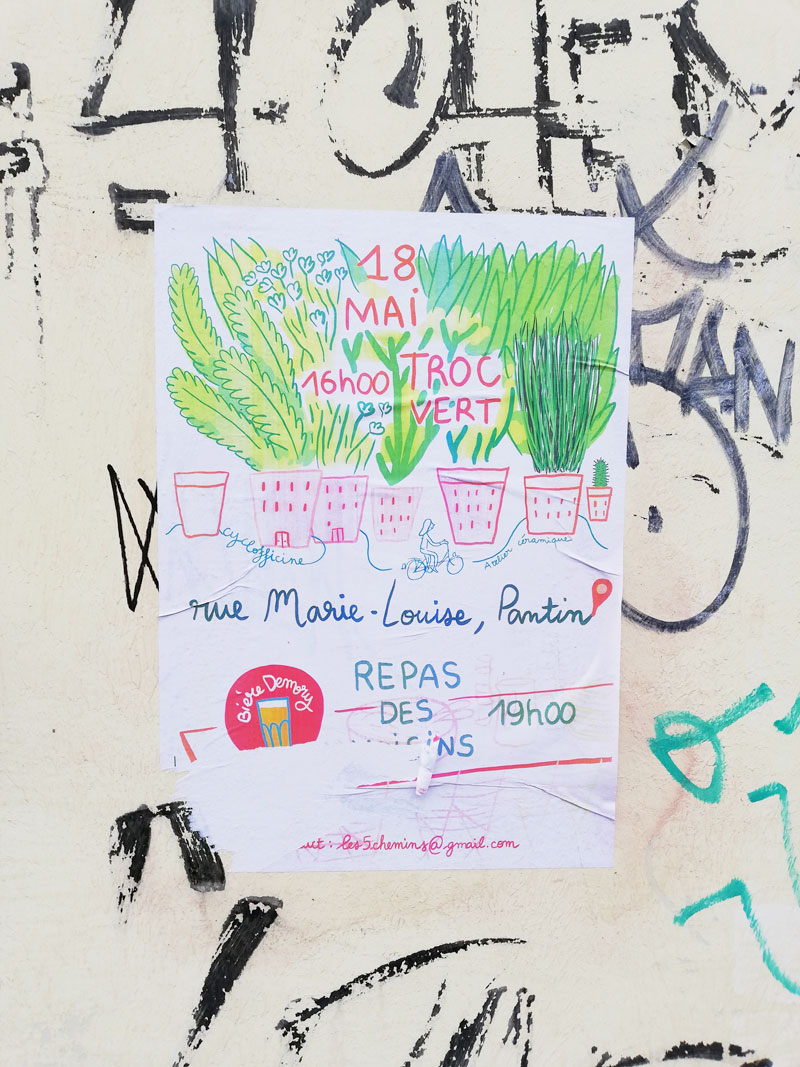 18
MAI
16h00
TROC
VERT
cyclofficine
Atelier céramique
rue Marie-Louise, Pantin
Bière Demory
REPAS
DES
19h00
les5chemins@gmail.com